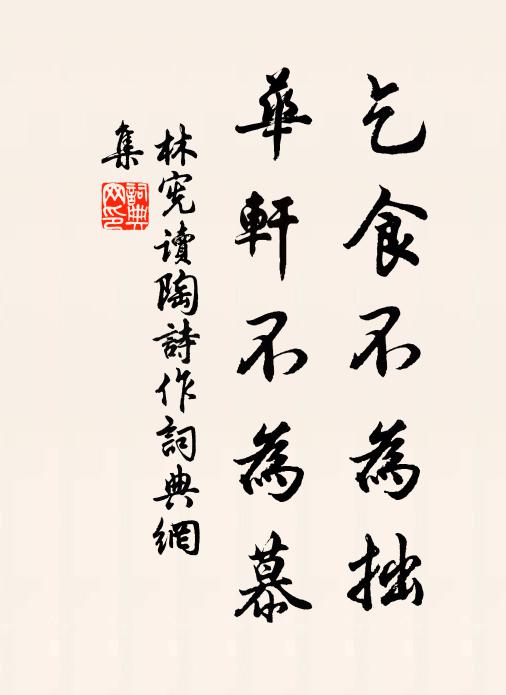 乞食不為拙
華軒不為慕
林憲讀陶詩作詞典網
集
詞典
网印